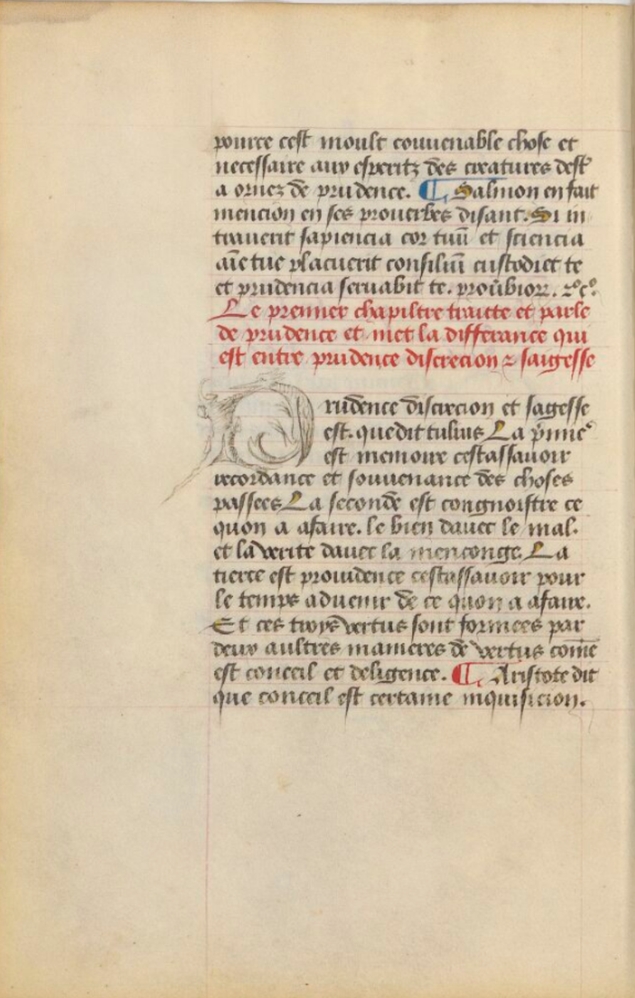 pource cest moult couuenable chose et
necessaire aux esperitz des creatures dest̃
a ornez de prudence. ¶ Salmon en fait
mencion en ses prouerbes disant. Si in
trauerit sapiencia cor tuũ et sciencia
aĩe tue placuerit consiliũ custodiet te
et prudencia seruabit te. prou̅bior. ⁊c̃.
Le premier chapiltre traicte et parle
de prudence et met la differance qui
est entre prudence discrecion ⁊ saigesse
Prudence discrecion et sagesse
est. que dit tulius La p̃mie᷑
est memoire cestassauoir
recordance et souuenance des choses
passees La seconde est congnoistre ce
quon a afaire. le bien dauec le mal.
et la verite dauec la menconge. La
tierce est prouidence cestassauoir pour
le temps aduenir de ce quon a afaire.
Et ces troys vertus sont formees par
deux aultres manieres de vertus com̃e
est conceil et deligence. ¶ Aristote dit
que conceil est certaine inquisicion.